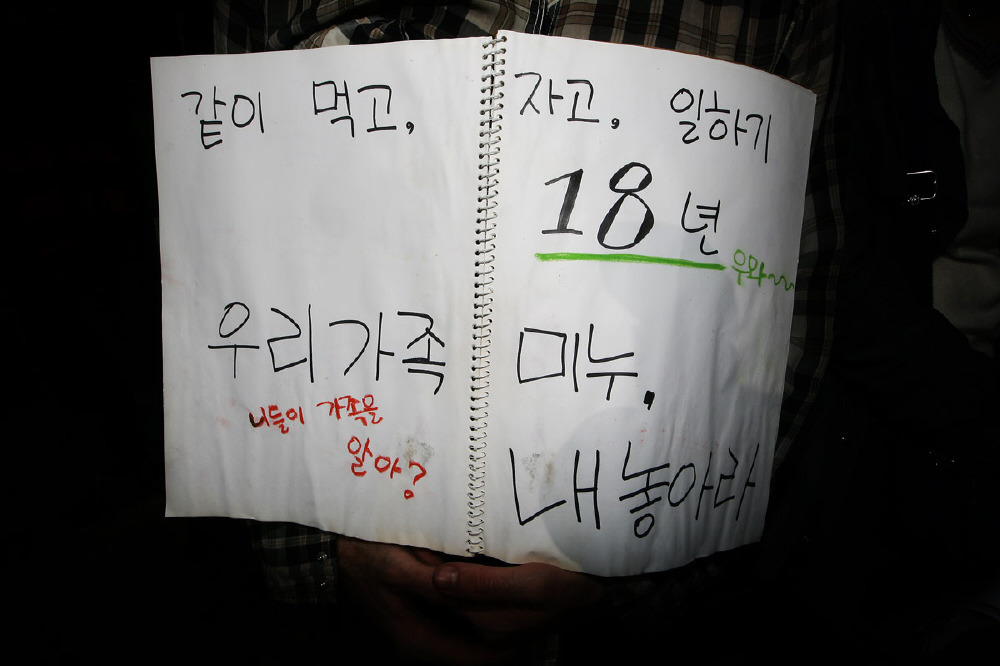 같이 먹고, 자고, 일하기
18년
우와~~
우리가족 미누.
니들이 가족을
알아?
내놓아라